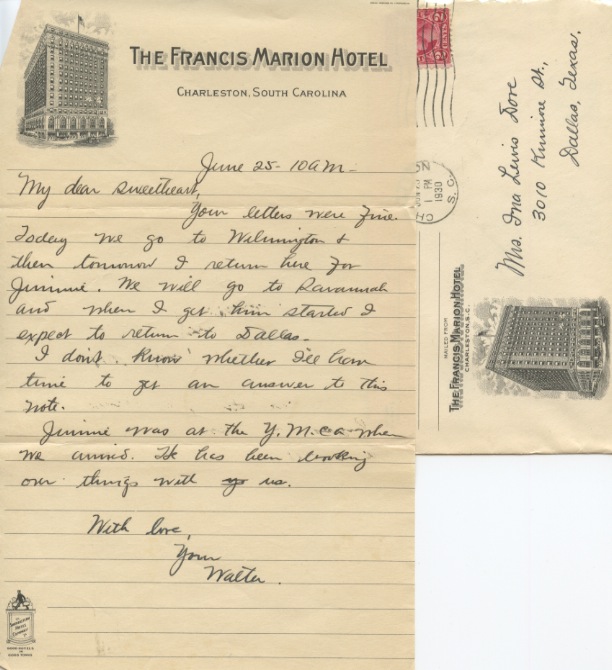 THE FRANCIS MARION HOTEL
CHARLESTON, SOUTH CAROLINA
June 25 - 10 am -
My dear sweetheart,
Your letters were fine.
Today we go to Wilmington &
then tomorrow I return here for
Jimmie. We will go to Savannah
and when I get him started I
expect to return to Dallas.
I don't know whether I'll have
time to get an answer to this
note.
Jimmie was at the Y.M.C.A when
we arrived. He has been looking
over things with us.
With love,
Your
Walter.
2 CENTS 2
1 PM
1930
S. C.
CH
Mrs. Ina Lewis Dore
3010 Kinmore St.,
Dallas, Texas.
MAILED FROM
THE FRANCIS MARION HOTEL
CHARLESTON, S.C.